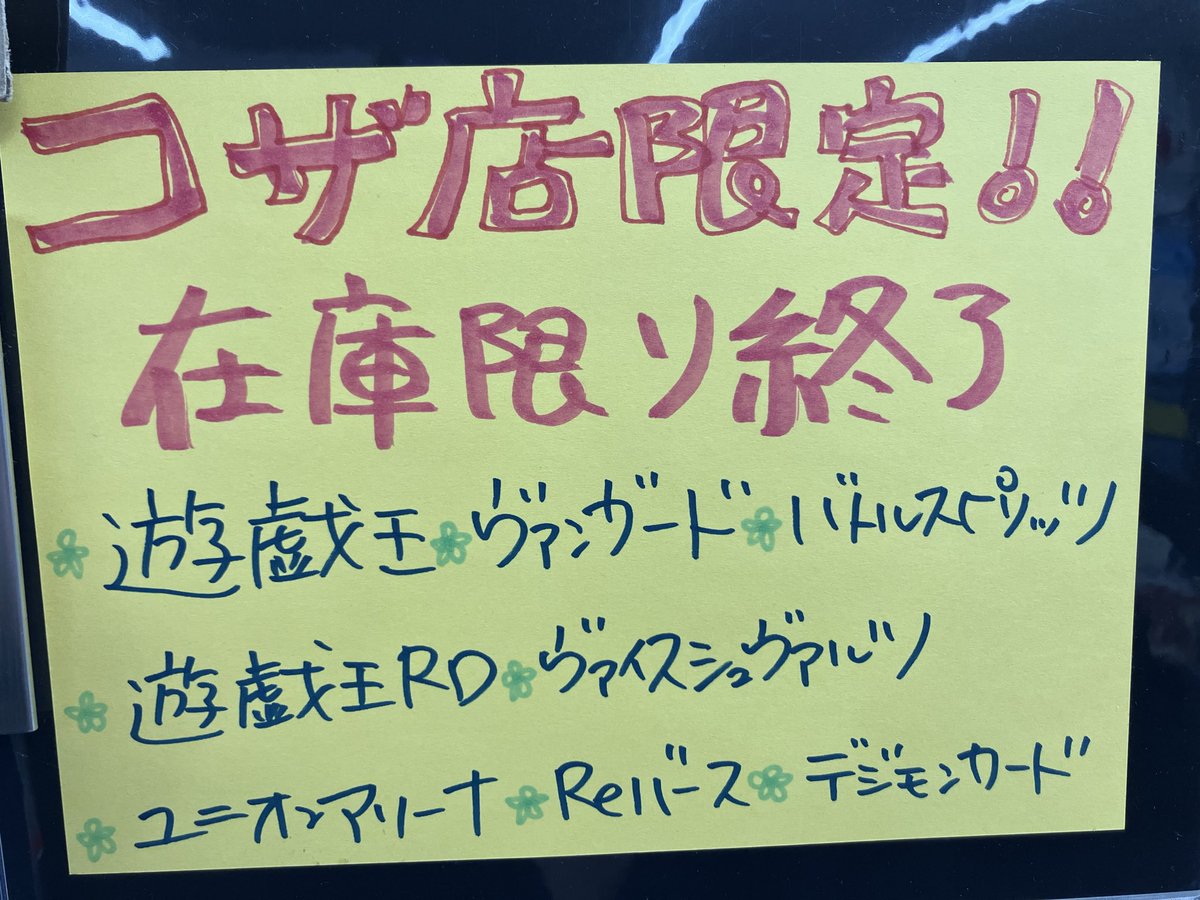 コザ店限定!!
在庫限り終了
遊戯王 ヴァンガード バトルスピリッツ
遊戯王RD ヴァイスシュヴァルツ
ユニオンアリーナ Reバース デジモンカード